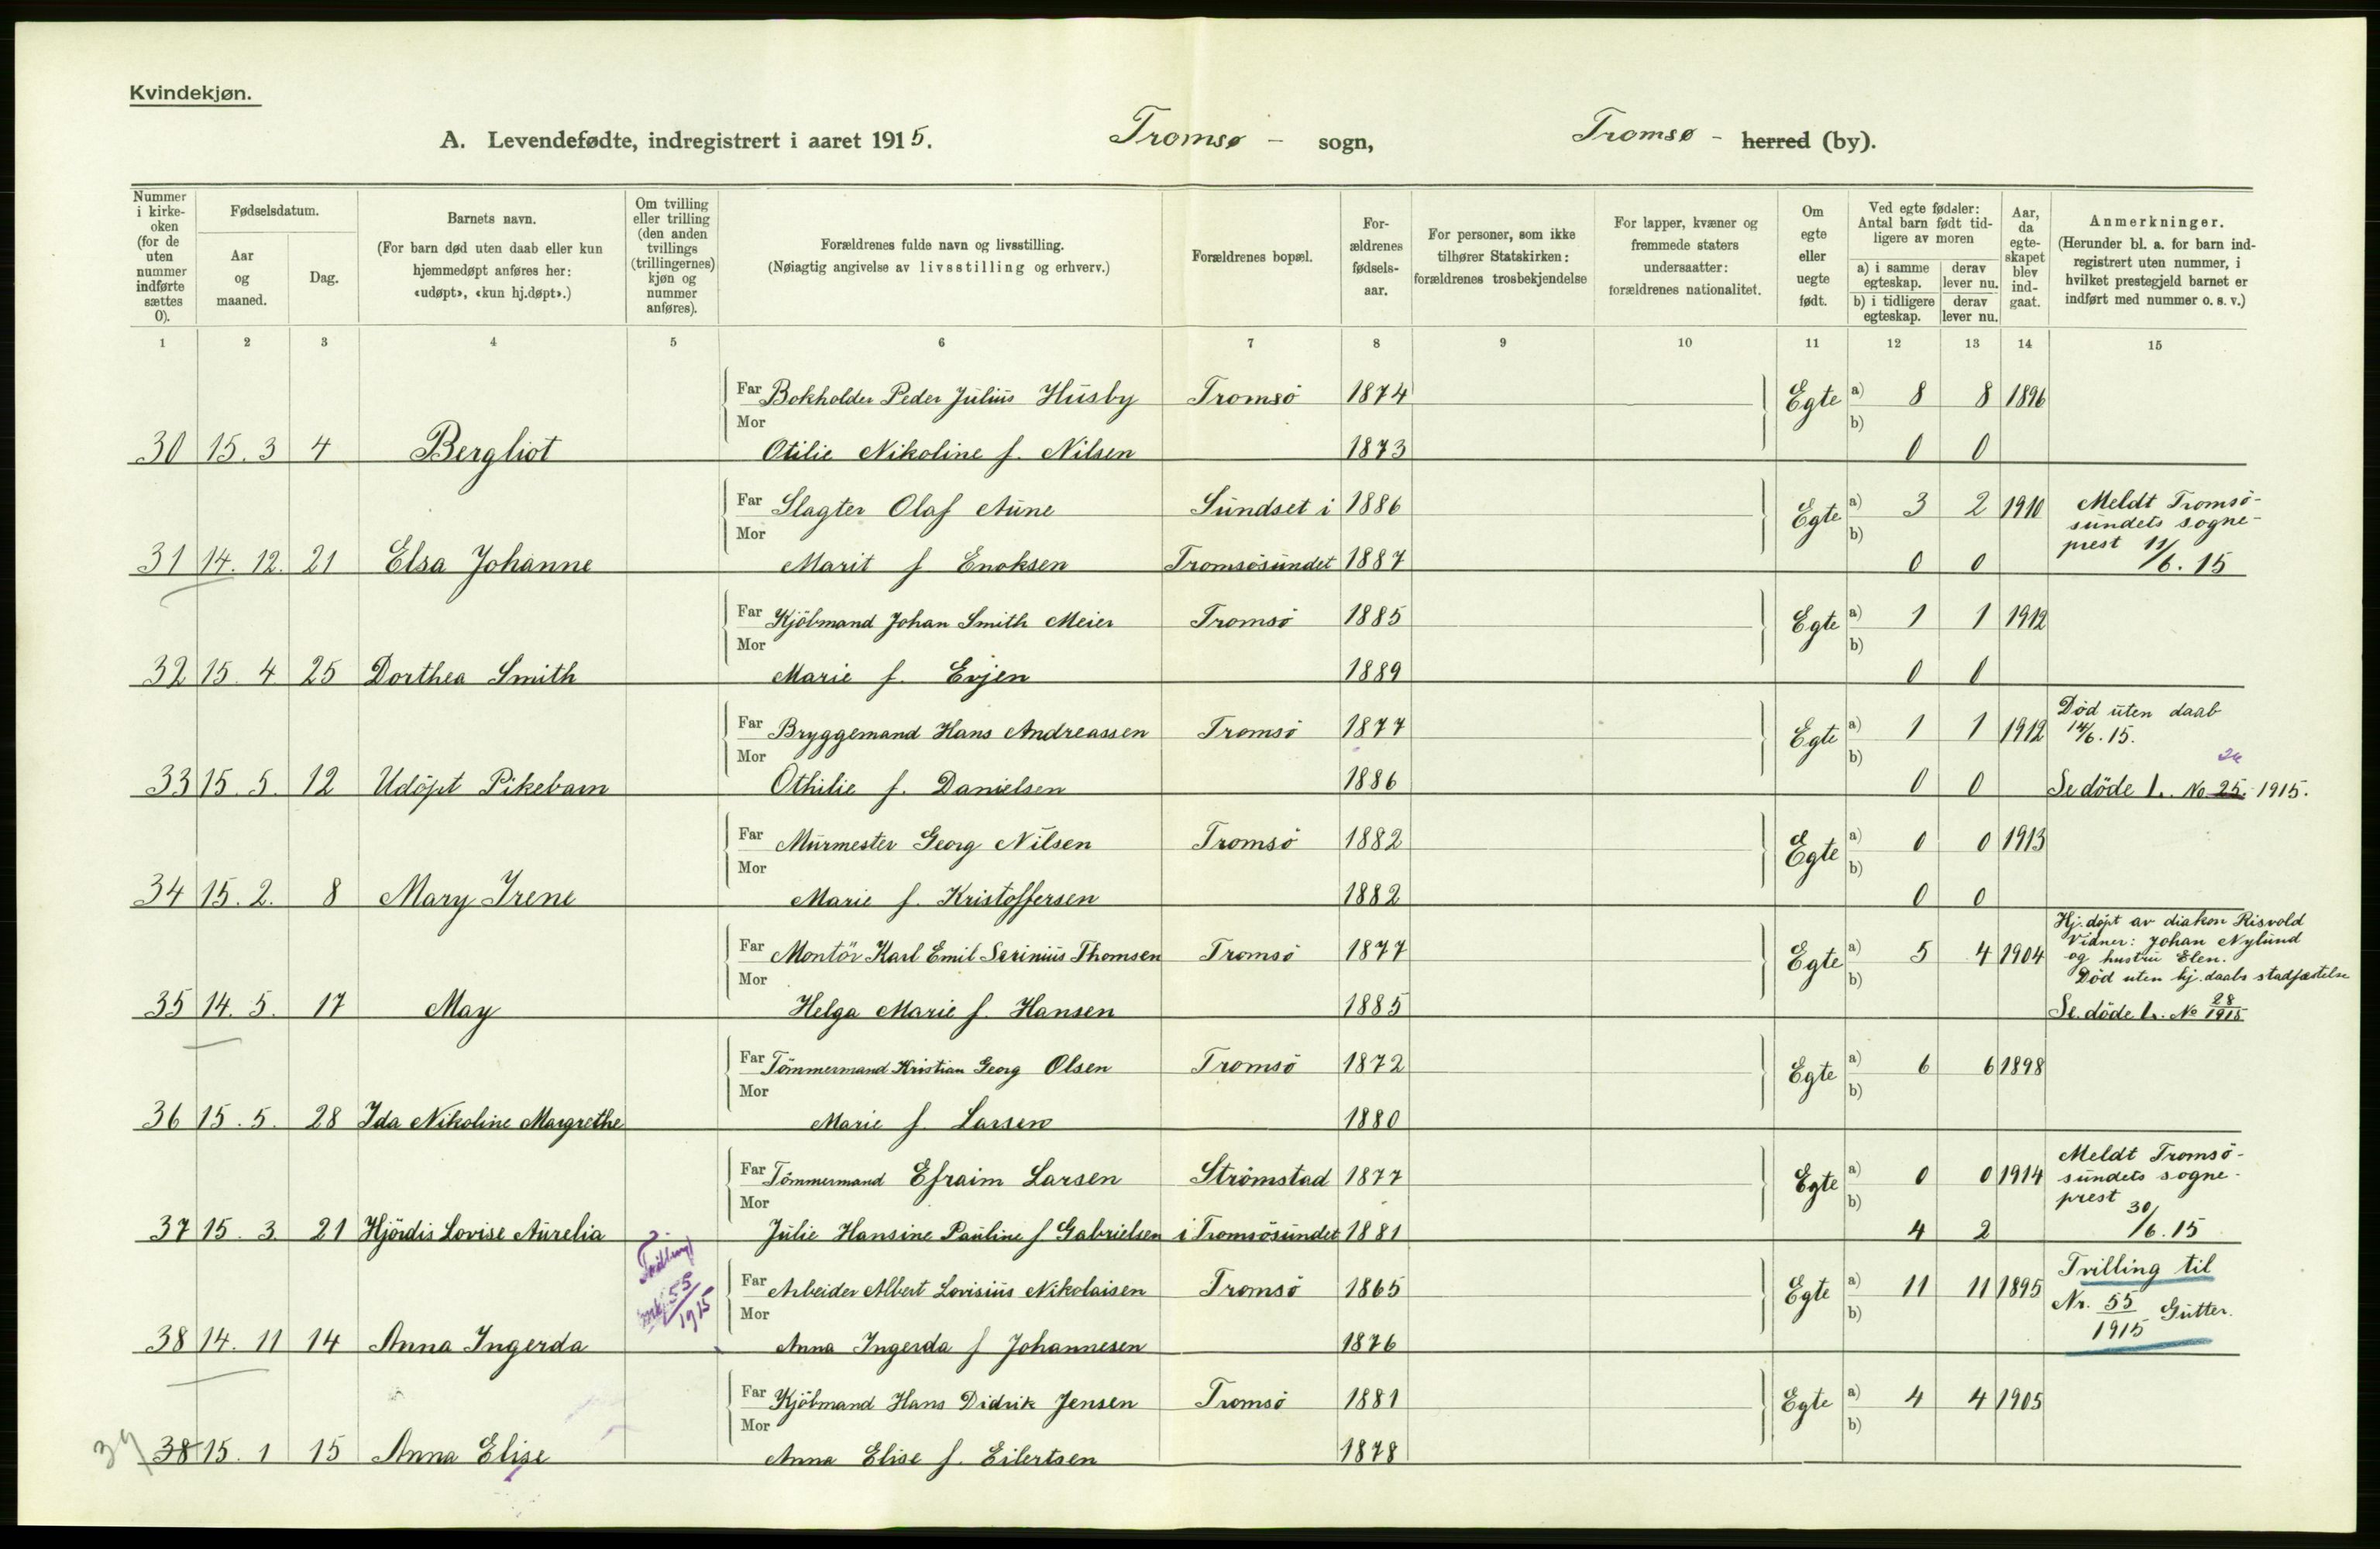 Kvindekjøn.
A. Levendefødte, indregistrert i aaret 1915. Tromsø – sogn, Tromsø – herred (by).
Nummer i kirke- oken (for de uten nummer indførte sættes 0).
Fødselsdatum.
Aar og maaned.
Dag.
Barnets navn.
(For barn død uten daab eller kun hjemmedøpt anføres her: «udøpt», «kun hj.døpt».)
Om tvilling eller trilling (den anden tvillings (trillingernes) kjøn og nummer anføres).
Forældrenes fulde navn og livsstilling.
(Nøiagtig angivelse av livsstilling og erhverv.)
Forældrenes bopæl.
For- ældrenes fødsels- aar.
For personer, som ikke tilhører Statskirken: forældrenes trosbekjendelse
For lapper, kvæner og fremmede staters undersaatter: forældrenes nationalitet.
Om egte eller uegte født.
Ved egte fødsler: Antal barn født tid- ligere av moren
a) i samme egteskap. derav lever nu.
b) i tidligere egteskap. derav lever nu.
Aar, da egte- skapet blev ind- gaat.
Anmerkninger.
(Herunder bl. a. for barn ind- registrert uten nummer, i hvilket prestegjeld barnet er indført med nummer o. s. v.)
1 2 3 4 5 6 7 8 9 10 11 12 13 14 15
Far Bokholder Peder Julius Husby Tromsö 1874 Egte a) 8 8 1896
Mor b)
30 15. 3 4 Bergliot Otilie Nikoline f. Nilsen 1873 0 0
Far Slagter Olaf Aune Sundset i 1886 Egte a) 3 2 1910 Meldt Tromsö-
sundets sogne-
Mor b) prest 11/6. 15
31 14. 12. 21 Elsa Johanne Marit f Enoksen Tromsösundet 1887 0 0
Far Kjöbmand Johan Smith Meier Tromsö 1885 Egte a) 1 1 1912
Mor b)
32 15. 4 25 Dorthea Smith Marie f. Evjen 1889 0 0
Far Bryggemand Hans Andreassen Tromsö 1877 Egte a) 1 1 1912 Död uten daab
14/6. 15.
Mor b)
33 15. 5. 12 Udöpt Pikebarn Othilie f. Danielsen 1886 0 0 Se döde L. No 25. 1915.
Far Murmester Georg Nilsen Tromsö 1882 Egte a) 0 0 1913
Mor b)
34 15. 2. 8 Mary Irene Marie f. Kristoffersen 1882 0 0
Hj. döpt av diakon Risvold
Far Montör Karl Emil Serinius Thomsen Tromsö 1877 Egte a) 5 4 1904 Vidner: Johan Nylund
og hustru Elen.
Mor b) Död uten hj. daabs stadfæstelse
35 14. 5. 17 May Helga Marie f. Hansen 1885 Se. döde L. No 28/1915
Far Tömmermand Kristian Georg Olsen Tromsö 1872 Egte a) 6 6 1898
Mor b)
36 15. 5. 28 Ida Nikoline Margrethe Marie f. Larsen 1880
Far Tömmermand Efraim Larsen Strömstad 1877 Egte a) 0 0 1914 Meldt Tromsö-
sundets sogne-
Mor b) prest 30/6. 15
37 15. 3 21 Hjördis Lovise Aurelia Julie Hansine Pauline f Gabrielsen i Tromsösundet 1881 4 2
Far Arbeider Albert Lovisius Nikolaisen Tromsö 1865 Egte a) 11 11 1895 Tvilling til
Mor b) Nr. 55/1915 Gutter.
55/1915
38 14. 11 14 Anna Ingerda Anna Ingerda f Johannesen 1876
Far Kjöbmand Hans Didrik Jensen Tromsö 1881 Egte a) 4 4 1905
Mor b)
39 38 15. 1 15 Anna Elise Anna Elise f. Eilertsen 1878